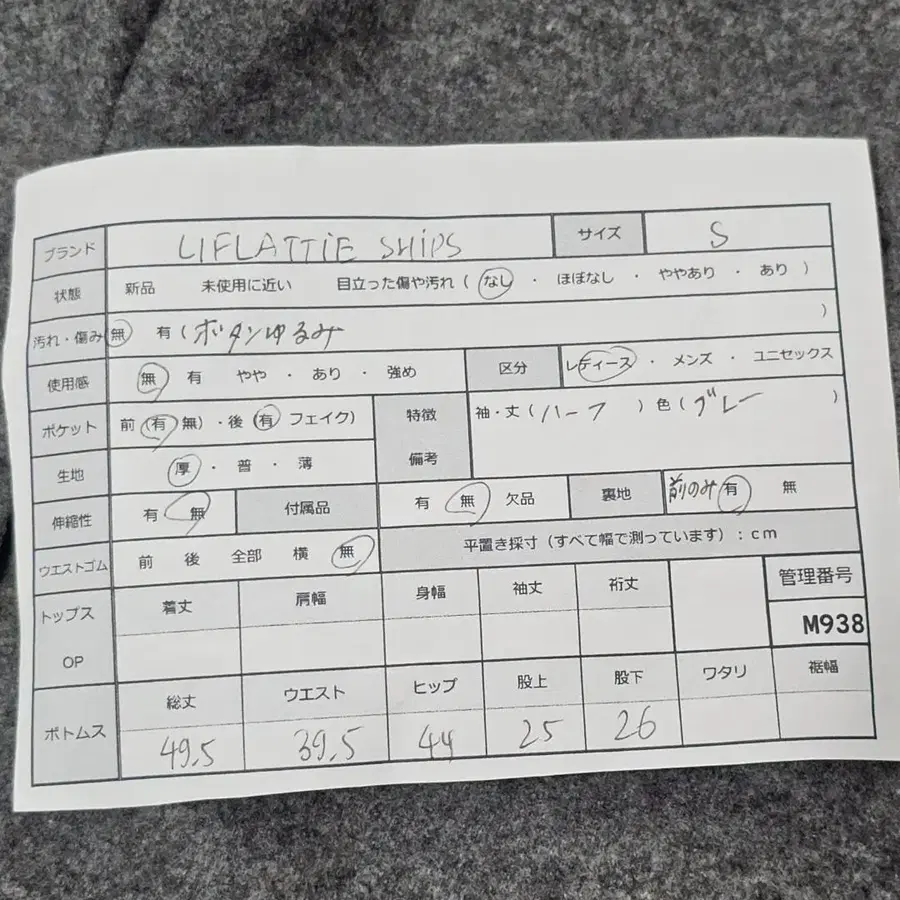 ブランド LIFLATTIE SHIPS サイズ S
状態 新品 未使用に近い 目立った傷や汚れ(なし・ほぼなし・ややあり・あり)
汚れ・傷み 無 有(ボタンゆるみ )
使用感 無 有 やや・あり・強め 区分 レディース・メンズ・ユニセックス
ポケット 前(有 無)・後(有 フェイク) 特徴 袖・丈(ハーフ )色(グレー )
備考
生地 厚・普・薄
伸縮性 有 無 付属品 有 無 欠品 裏地 前のみ 有 無
ウエストゴム 前 後 全部 横 無 平置き採寸(すべて幅で測っています):cm
トップス 着丈 肩幅 身幅 袖丈 裄丈 管理番号
OP M938
ボトムス 総丈 ウエスト ヒップ 股上 股下 ワタリ 裾幅
49.5 39.5 44 25 26